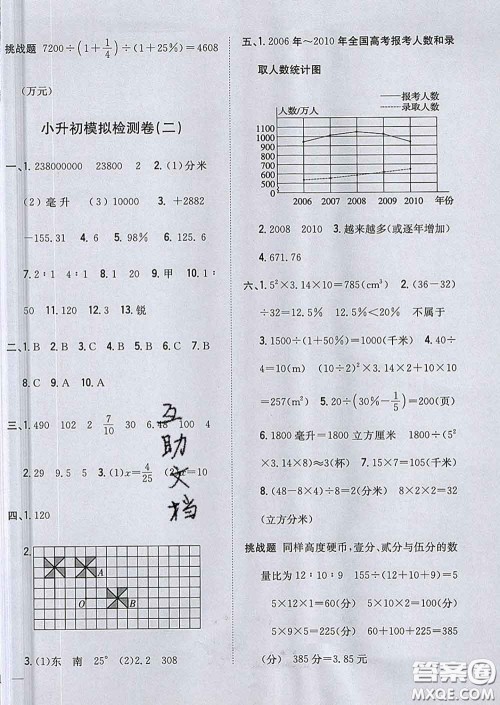 挑战题 7200÷(1+1/4)÷(1+25%)=4608
(万元)
小升初模拟检测卷(二)
一、1.238000000 23800 2 2.(1)分米
(2)毫升 (3)10000 3.+2882
-155.31 4.6 5.98% 6.125.6
7.2∶1 4∶1 8.10 9.甲 10.4
11.120 12.9 13.锐
二、1.B 2.B 3.A 4.C 5.B 6.B
7.B 8.C 9.A 10.A
三、1.490 102 2 7/10 30 6.48 100 4
2.29 9.5 4 3.(1)x=4/25 (2)x=10
四、1.120
2.
A
O
B
3.(1)东 南 25° (2)2.2 308
五、1.2006年~2010年全国高考报考人数和录
取人数统计图
报考人数
录取人数
人数/万人
1100
1000
900
800
700
600
500
0
2006 2007 2008 2009 2010 年份
2.2008 2010 3.越来越多(或逐年增加)
4.671.76
六、1.5²×3.14×10=785(cm³) 2.(36-32)
÷32=12.5% 12.5%<20% 不属于
3.1200÷(50%+10/10+5)=1000(千米) 4.20×
4÷2=40(m) (10÷2)²×3.14×2+10×10
=257(m²) 5.20÷(30%-1/5)=200(页)
6.1800毫升=1800立方厘米 1800÷(5²
×3.14×8)≈3(杯) 7.86千米
8.(48-8×4)÷8=2(分米) 8×2×2=32
(立方分米)
挑战题 同样高度硬币,壹分、贰分与伍分的数
量比为12∶10∶9 155÷(12+10+9)=5
5×12×1=60(分) 5×10×2=100(分)
5×9×5=225(分) 60+100+225=
385(分) 385分=3.85元
互
助
文
档
答案圈
MXQE.COM